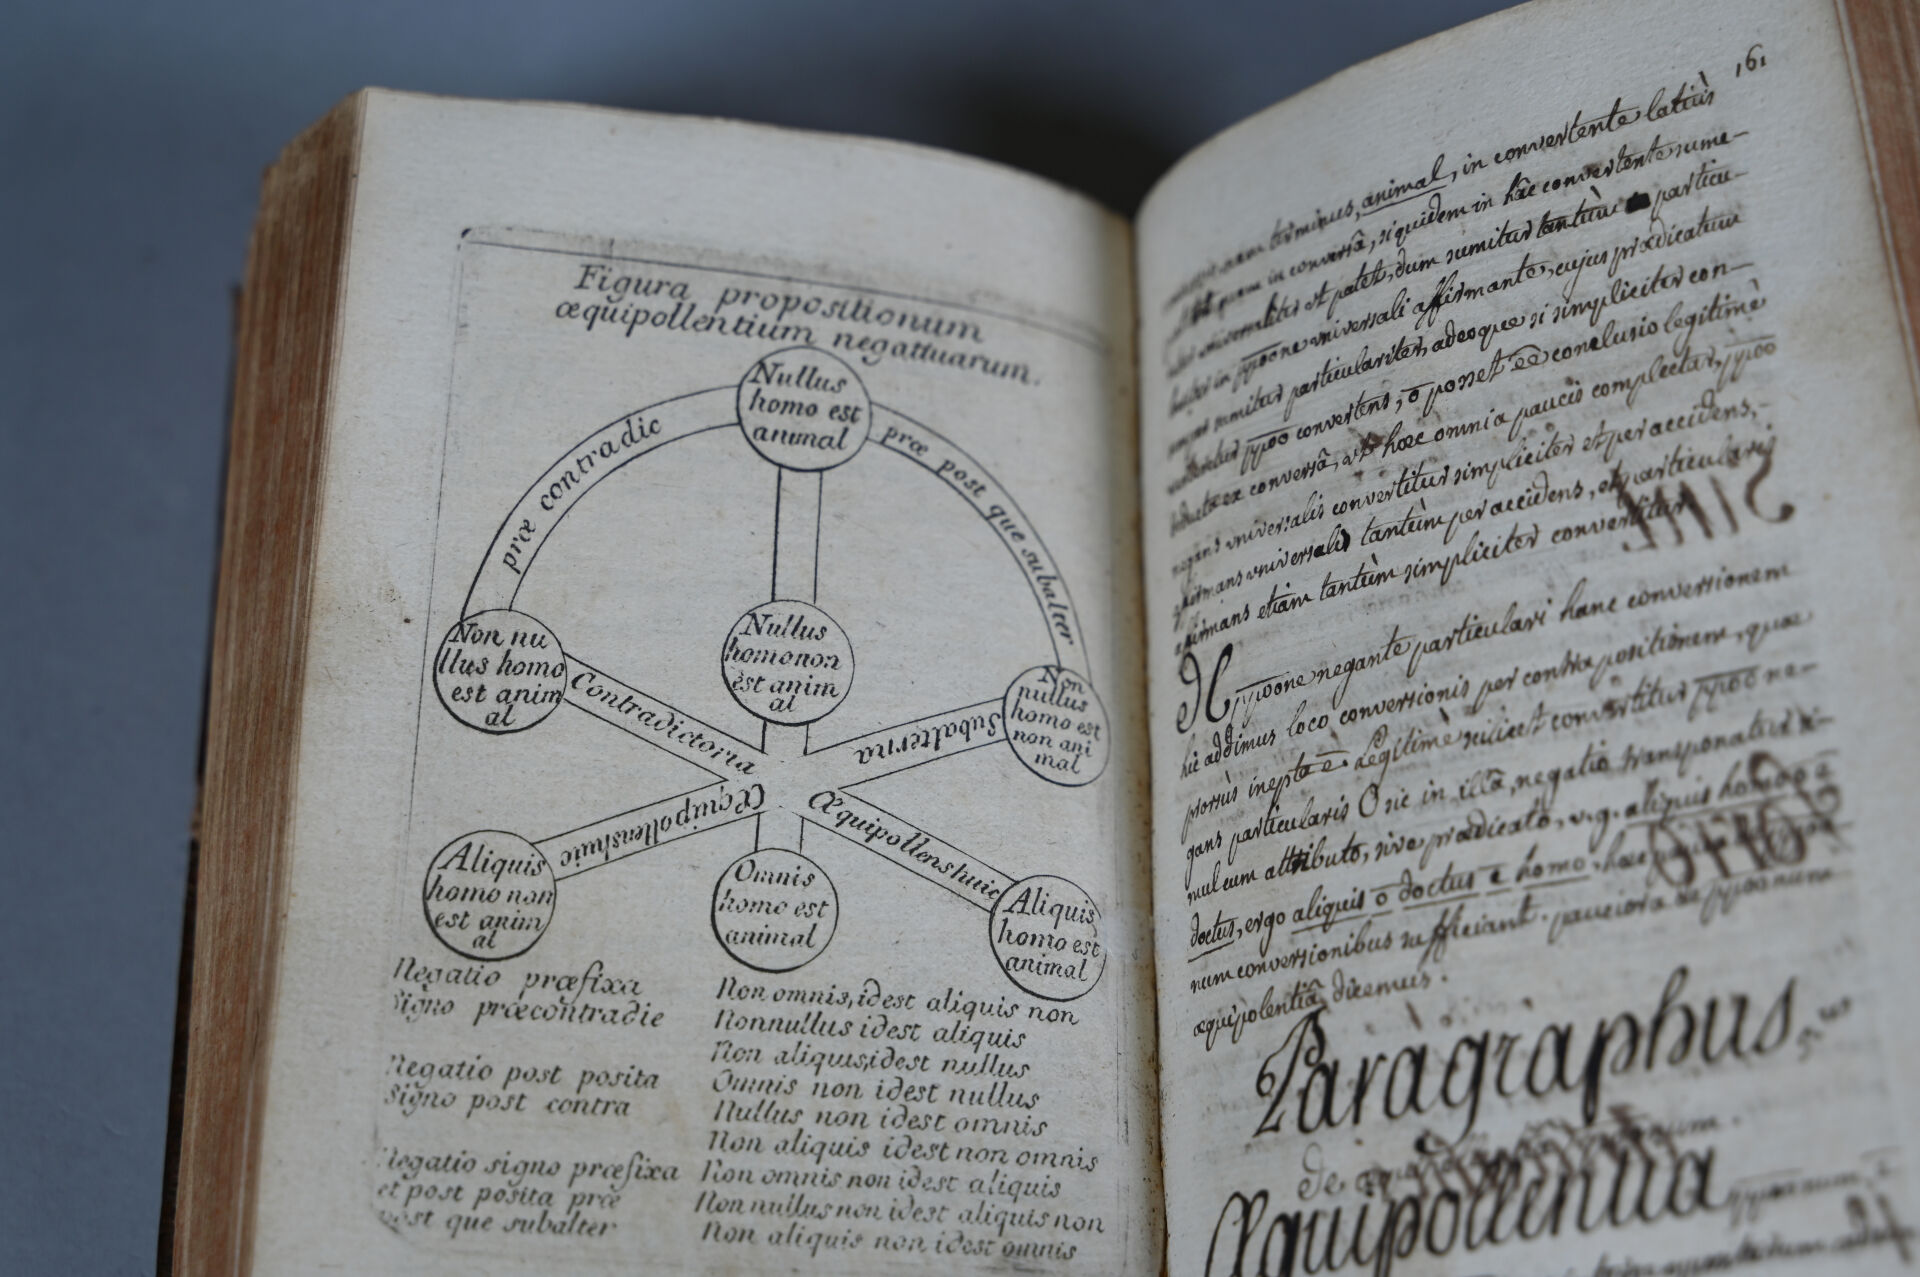 Figura propositionum
æquipollentium negatiuarum.
Nullus
homo est
animal
præ contradic
præ post que subalter
Non nu
llus homo
est anim
al
Nullus
homo non
est anim
al
Non
nullus
homo est
non ani
mal
Contradictoria
Subalterna
Æquipollenshuic
Æquipollenshuic
Aliquis
homo non
est anim
al
Omnis
homo est
animal
Aliquis
homo est
animal
Negatio præfixa
Signo præcontradic
Negatio post posita
Signo post contra
Negatio signo præfixa
et post posita præ
post que subalter
Non omnis, idest aliquis non
Nonnullus idest aliquis
Non aliquis, idest nullus
Omnis non idest nullus
Nullus non idest omnis
Non aliquis idest non omnis
Non omnis non idest aliquis
Non nullus non idest aliquis non
Non aliquis non idest omnis
161
terminus, animal, in convertente latiùs
quam in conversâ, siquidem in hâc convertente sume-
universaliter ut patet, dum sumitur tantùm particu-
in ppōone universali affirmante, cujus prædicatum
sumitur particulariter, adeoque si simpliciter con-
ppōo convertens, ō posset ēē conclusio legitimè
ex conversâ, ut hæc omnia paucis complectar, ppōo
negans universalis convertitur simpliciter et per accidens,
affirmans universalis tantùm per accidens, et particularis
affirmans etiam tantùm simpliciter convertitur.
ppōone negante particulari hanc conversionem
hic addimus loco conversionis per contra positionem, quæ
prorsùs inepta ē. Legitimè scilicet convertitur ppōo ne-
gans particularis O sic in illâ, negatio transponatur si-
mul cum attributo, sive prædicato, v.g. aliquis homo ō ē
doctus, ergo aliquis ō doctus ē homo. hæc
num conversionibus sufficiant. pauciora de ppōonum
æquipolentiâ dicemus.
Paragraphus
de
Æquipollentia